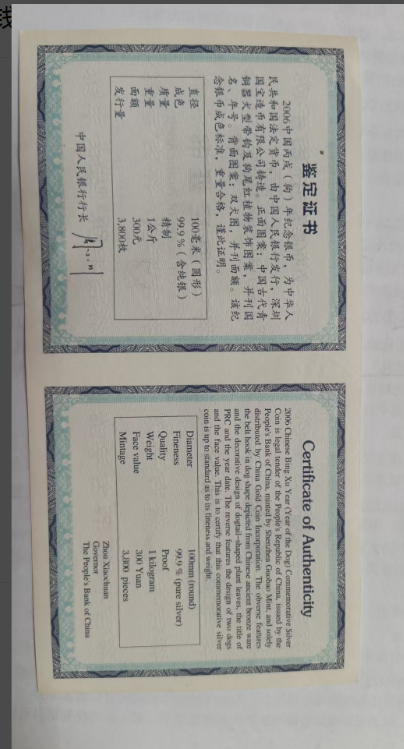 鉴定证书
2006中国丙戌(狗)年纪念银币,为中华人
民共和国法定货币,由中国人民银行发行,深圳
国宝造币有限公司铸造。正面图案:中国古代青
铜器犬型带钩及狗尾红植物装饰图案,并刊国
名、年号。背面图案:双犬图,并刊面额。该纪
念银币成色标准,重量合格,谨此证明。
直径 100毫米(圆形)
成色 99.9%(含纯银)
质量 精制
重量 1公斤
面额 300元
发行量 3,800枚
中国人民银行行长
Certificate of Authenticity
2006 Chinese Bing Xu Year (Year of the Dog) Commemorative Silver
Coin is legal tender of the People's Republic of China, issued by the
People's Bank of China, minted by Shenzhen Guobao Mint, and solely
distributed by China Gold Coin Incorporation. The obverse features
the belt hook in dog shape depicted from Chinese ancient bronze ware
and the decorative design of dogtail-shaped plant leaves, the title of
PRC and the year date. The reverse features the design of two dogs
and the face value. This is to certify that this commemorative silver
coin is up to standard as to its fineness and weight.
Diameter 100mm (round)
Fineness 99.9 % (pure silver)
Quality Proof
Weight 1 kilogram
Face value 300 Yuan
Mintage 3,800 pieces
Zhou Xiaochuan
Governor
The People's Bank of China